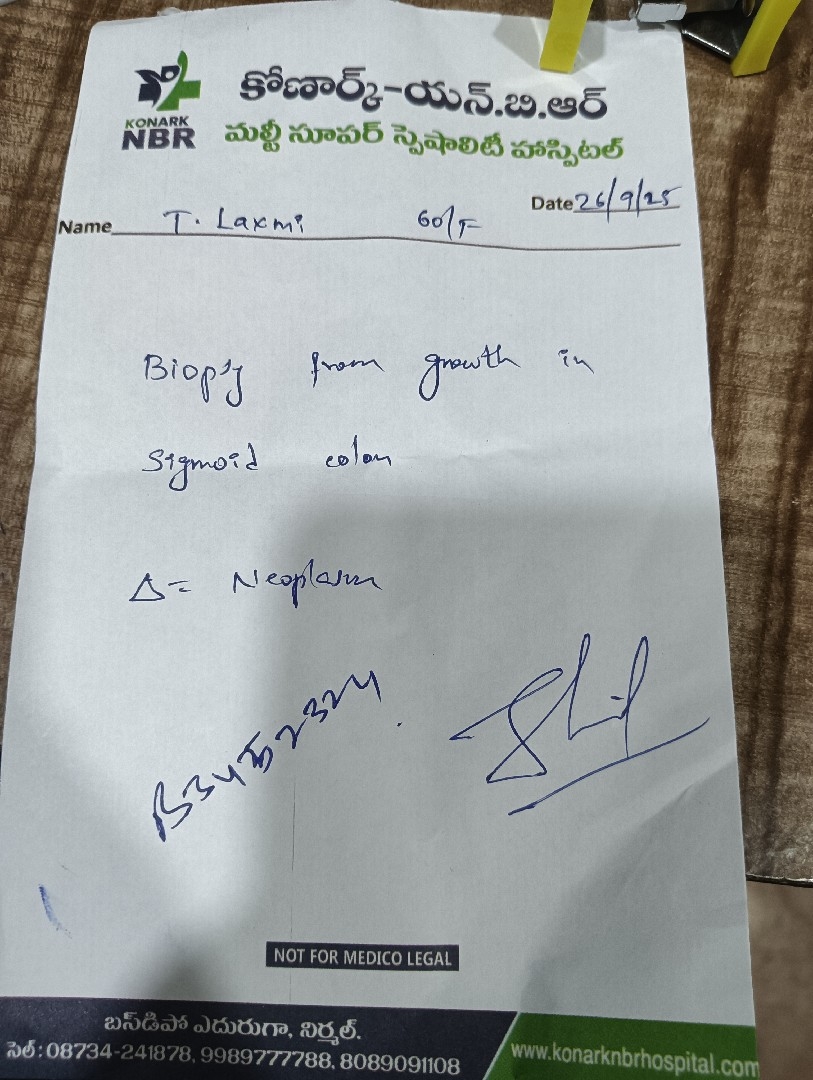 KONARK
NBR
కోణార్క్-యన్.బి.ఆర్
మల్టీ సూపర్ స్పెషాలిటీ హాస్పిటల్
Date 26/9/25
Name T. Laxmi 60/F
Biopsy from growth in
Sigmoid colon
Δ= Neoplasm
B3452324
NOT FOR MEDICO LEGAL
బస్‌డిపో ఎదురుగా, నిర్మల్.
సెల్: 08734-241878, 9989777788, 8089091108
www.konarknbrhospital.com